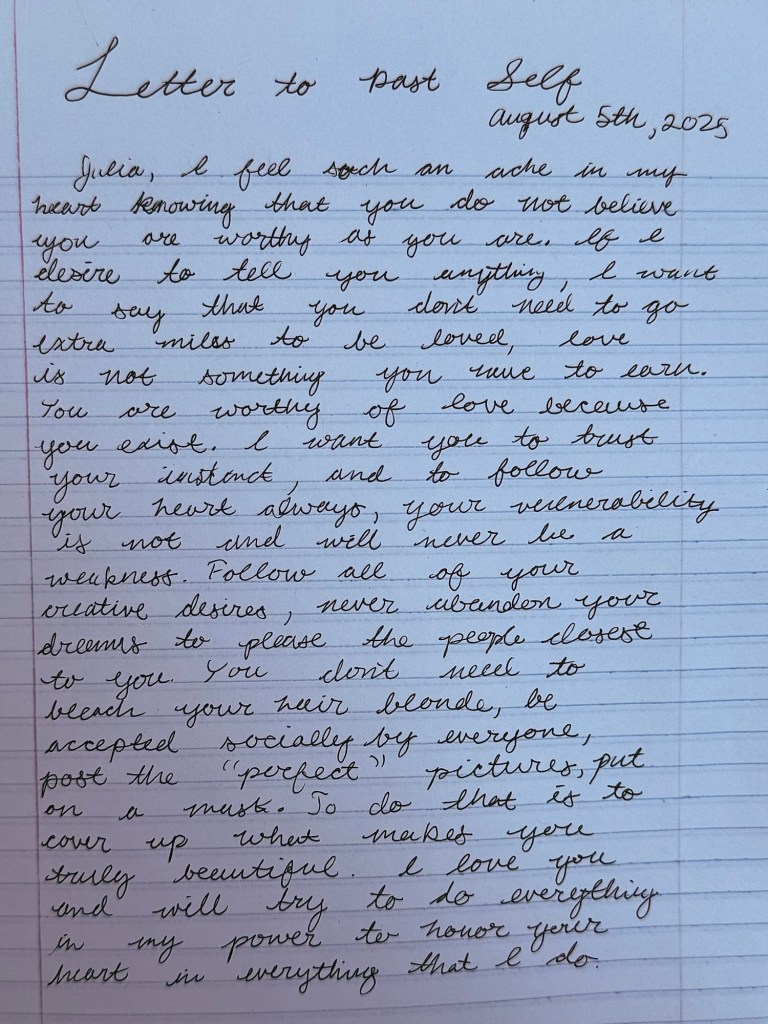 Letter to past Self
August 5th, 2025
Julia, I feel such an ache in my
heart knowing that you do not believe
you are worthy as you are. If I
desire to tell you anything, I want
to say that you don't need to go
extra miles to be loved, love
is not something you have to earn.
You are worthy of love because
you exist. I want you to trust
your instinct, and to follow
your heart always, your vulnerability
is not and will never be a
weakness. Follow all of your
creative desires, never abandon your
dreams to please the people closest
to you. You don't need to
bleach your hair blonde, be
accepted socially by everyone,
post the "perfect" pictures, put
on a mask. To do that is to
cover up what makes you
truly beautiful. I love you
and will try to do everything
in my power to honor your
heart in everything that I do.